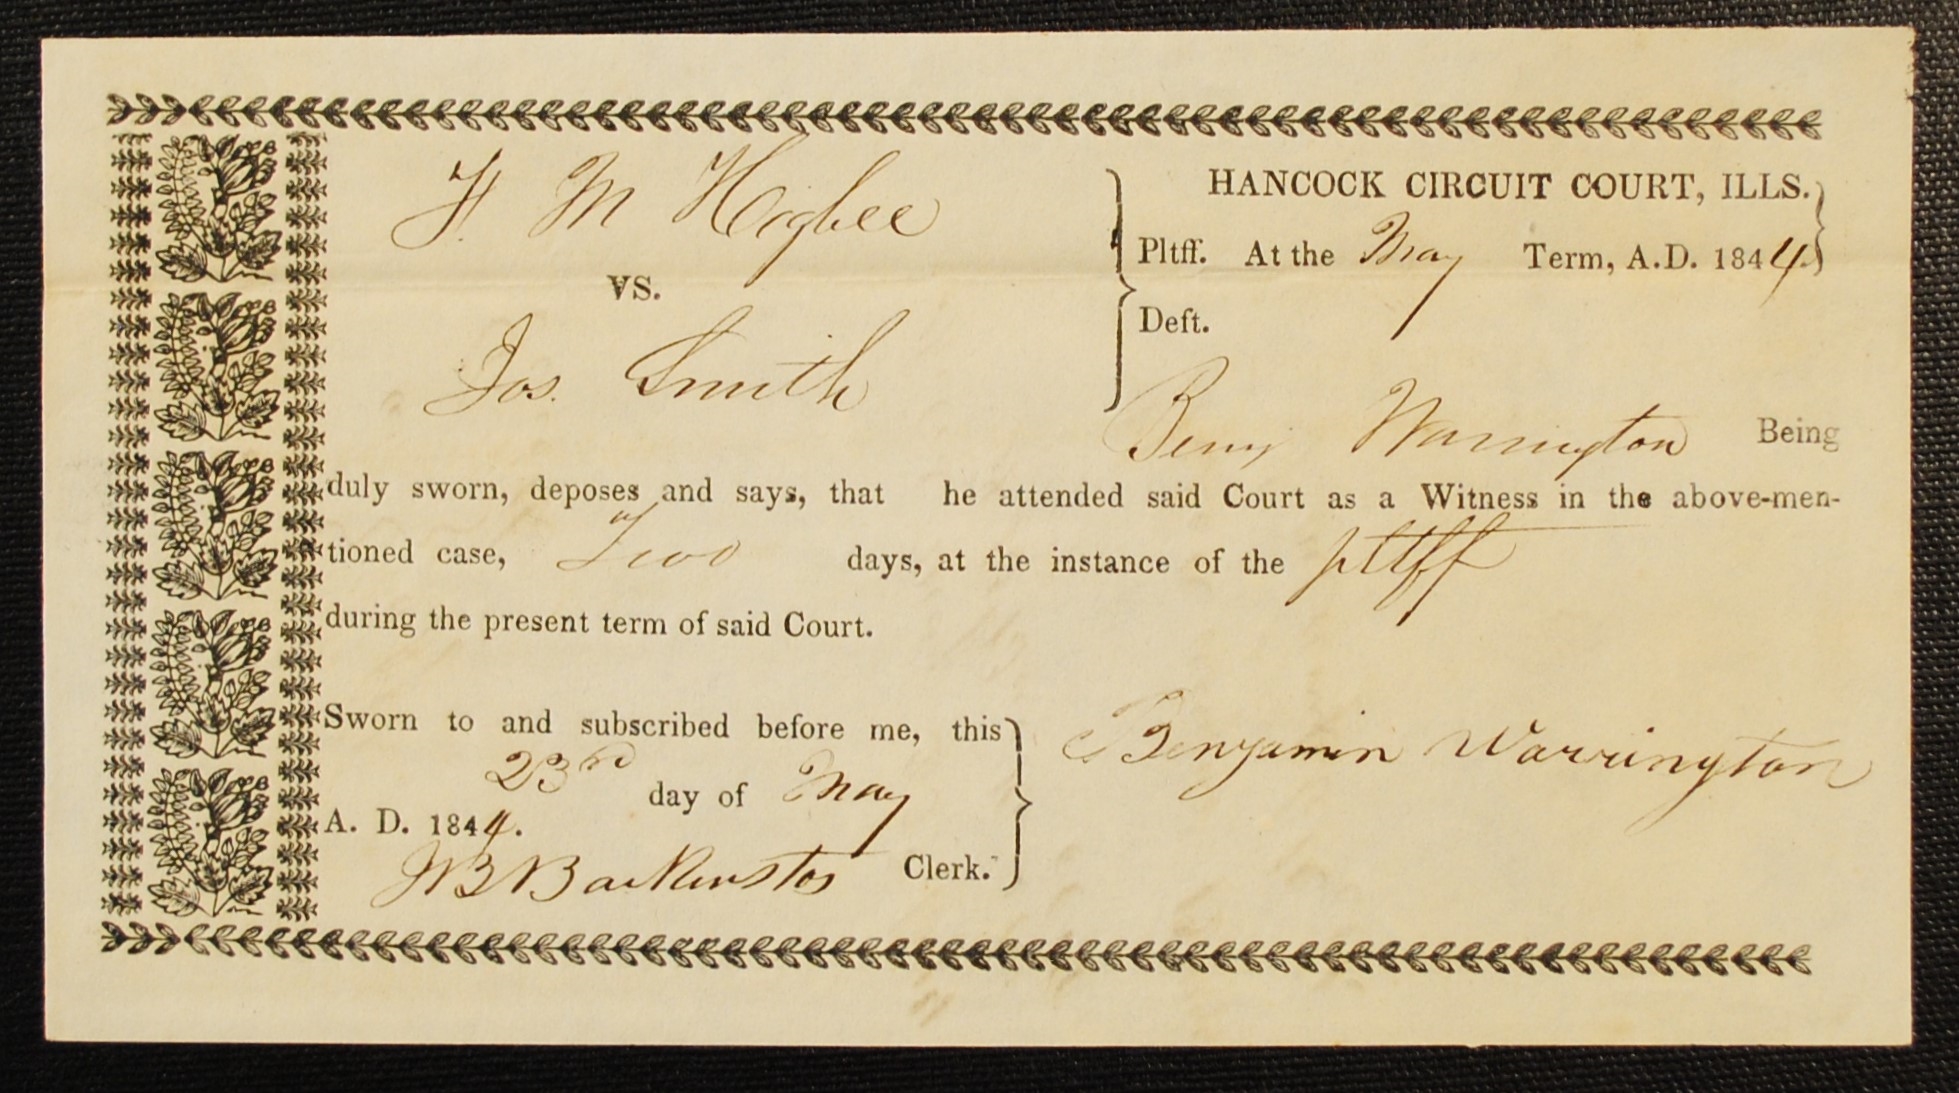 HANCOCK CIRCUIT COURT, ILLS.
F. M Higbee
Pltff. At the May Term, A.D. 1844.
VS.
Deft.
Jos. Smith
Benj Warrington Being
duly sworn, deposes and says, that he attended said Court as a Witness in the above-men-
tioned case, Two days, at the instance of the pltff
during the present term of said Court.
Sworn to and subscribed before me, this
23rd day of May
A. D. 1844.
JB Backenstos Clerk.
Benjamin Warrington